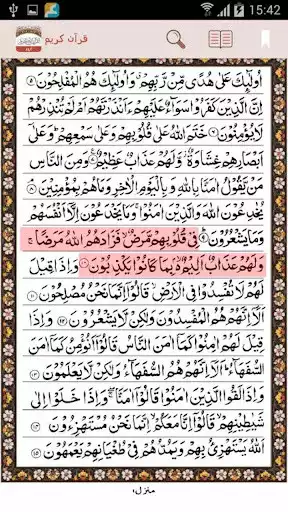 15:42
قرآن کریم
أُولَٰئِكَ عَلَىٰ هُدًى مِّن رَّبِّهِمْ وَأُولَٰئِكَ هُمُ الْمُفْلِحُونَ ۝٥
إِنَّ الَّذِينَ كَفَرُوا سَوَاءٌ عَلَيْهِمْ ءَأَنذَرْتَهُمْ أَمْ لَمْ تُنذِرْهُمْ
لَا يُؤْمِنُونَ ۝٦ خَتَمَ اللَّهُ عَلَىٰ قُلُوبِهِمْ وَعَلَىٰ سَمْعِهِمْ وَعَلَىٰ
أَبْصَارِهِمْ غِشَاوَةٌ وَلَهُمْ عَذَابٌ عَظِيمٌ ۝٧ وَمِنَ النَّاسِ
مَن يَقُولُ آمَنَّا بِاللَّهِ وَبِالْيَوْمِ الْآخِرِ وَمَا هُم بِمُؤْمِنِينَ ۝٨
يُخَادِعُونَ اللَّهَ وَالَّذِينَ آمَنُوا وَمَا يَخْدَعُونَ إِلَّا أَنفُسَهُمْ
وَمَا يَشْعُرُونَ ۝٩ فِي قُلُوبِهِم مَّرَضٌ فَزَادَهُمُ اللَّهُ مَرَضًا
وَلَهُمْ عَذَابٌ أَلِيمٌ بِمَا كَانُوا يَكْذِبُونَ ۝١٠ وَإِذَا قِيلَ
لَهُمْ لَا تُفْسِدُوا فِي الْأَرْضِ قَالُوا إِنَّمَا نَحْنُ مُصْلِحُونَ ۝١١
أَلَا إِنَّهُمْ هُمُ الْمُفْسِدُونَ وَلَٰكِن لَّا يَشْعُرُونَ ۝١٢ وَإِذَا
قِيلَ لَهُمْ آمِنُوا كَمَا آمَنَ النَّاسُ قَالُوا أَنُؤْمِنُ كَمَا آمَنَ
السُّفَهَاءُ أَلَا إِنَّهُمْ هُمُ السُّفَهَاءُ وَلَٰكِن لَّا يَعْلَمُونَ ۝١٣
وَإِذَا لَقُوا الَّذِينَ آمَنُوا قَالُوا آمَنَّا وَإِذَا خَلَوْا إِلَىٰ
شَيَاطِينِهِمْ قَالُوا إِنَّا مَعَكُمْ إِنَّمَا نَحْنُ مُسْتَهْزِءُونَ ۝١٤
اللَّهُ يَسْتَهْزِئُ بِهِمْ وَيَمُدُّهُمْ فِي طُغْيَانِهِمْ يَعْمَهُونَ ۝١٥
منزل۱